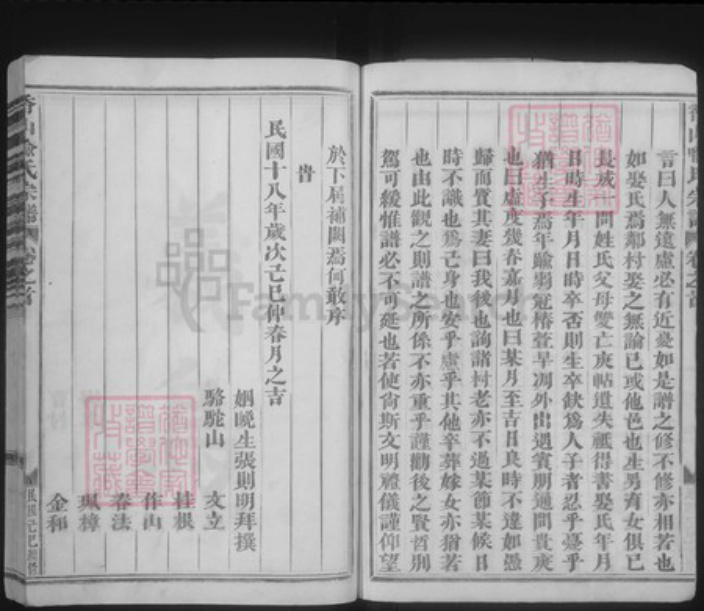 言曰人無遠慮必有近憂如是譜之修不修亦相若也
如娶氏焉鄰村娶之無論已或他邑也生男有女俱已
長成問姓氏父母雙亡庚帖遺失祗得書娶氏年月
日時生年月日時卒否則生卒缺為人子者忍乎臺乎
猶生子焉年踰弱冠椿萱早凋外出遇賓朋通問貴庚
也曰虛度幾春嘉月也曰某月至吉日良時不違如愚
歸而質其妻曰我後也詢諸村老亦不過某節某候日
時不識也為亡身也安乎慮乎其他卒葬嫁女亦猶若
也由此觀之則譜之所係不亦重乎謹勸後之賢哲別
駕可緩惟譜必不可延也若使尚斯文明禮儀謹仰望
於下屆補闕焉何敢序
旹
民國十八年歲次己巳仲春月之吉
姻晚生張則明拜撰
駱駝山 文立
桂根
作山
春法
珮樟
金和
民國己巳
FamilySearch